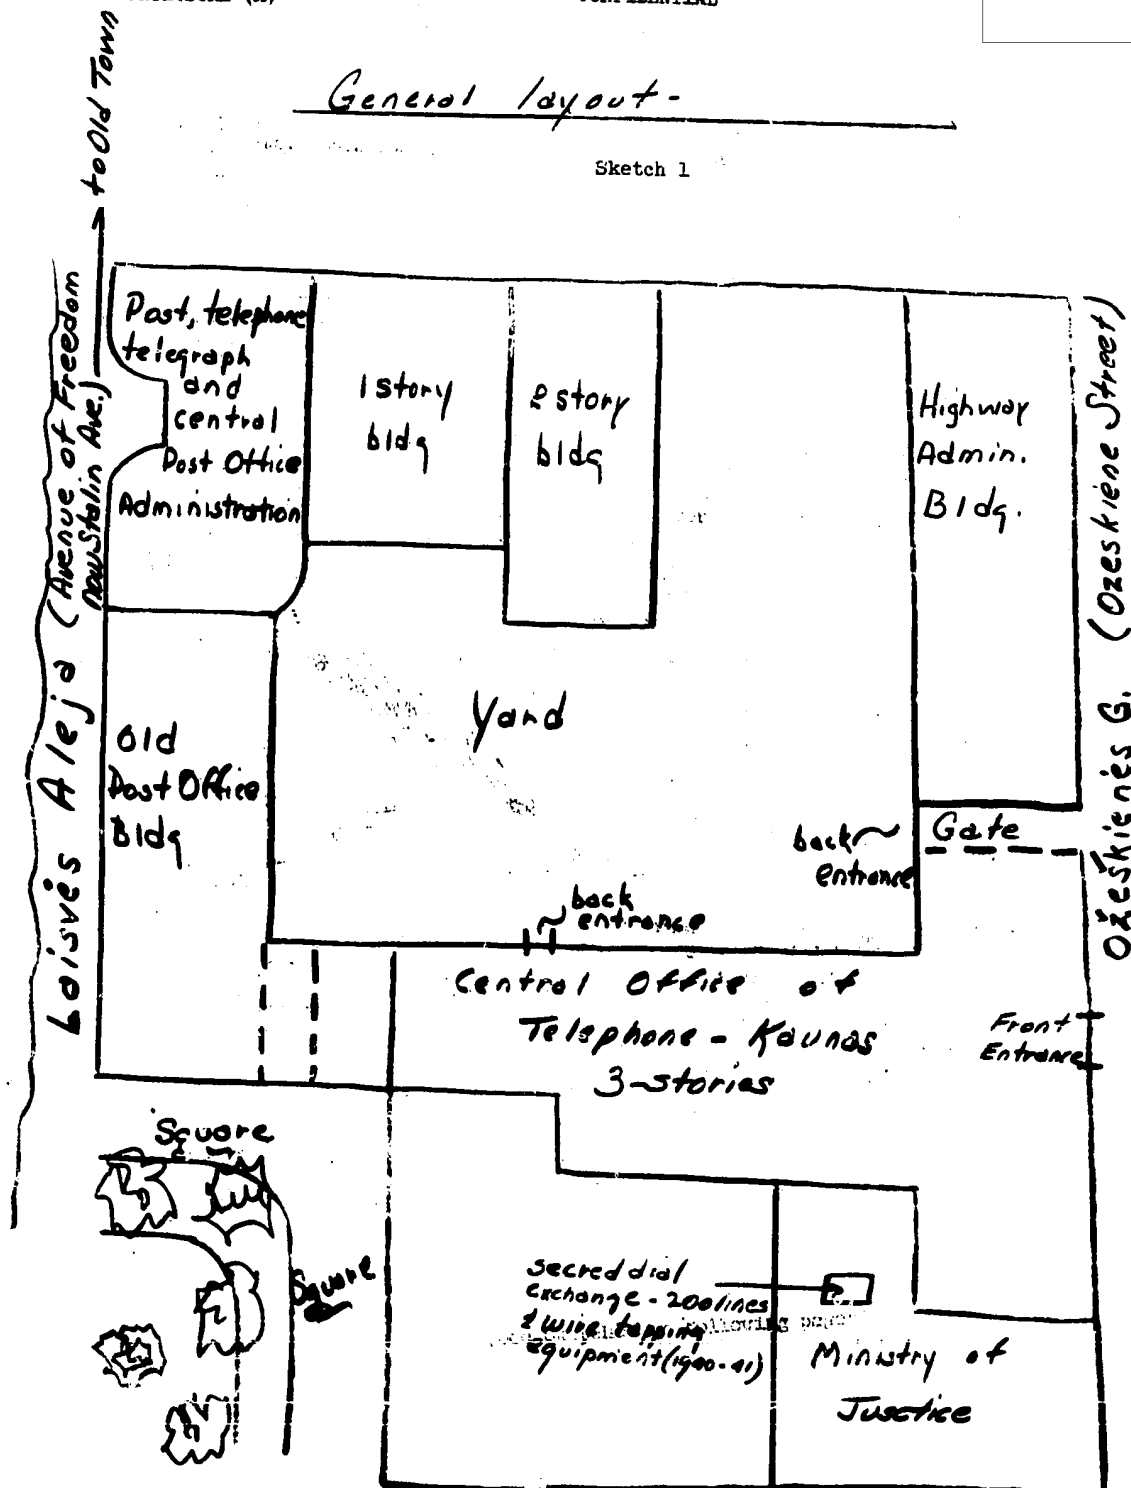 CONFIDENTIAL
General layout-
Sketch 1
to Old Town
Laisvės Aleja (Avenue of Freedom
now Stalin Ave.)
Post, telephone
telegraph
and
central
Post Office
Administration
1 story
bldg
2 story
bldg
Highway
Admin.
Bldg.
Ožeškienės G. (Ozeskiene Street)
Old
Post Office
Bldg
Yard
back
entrance
Gate
back
entrance
Central Office of
Telephone - Kaunas
3-stories
Front
Entrance
Square
Square
secred dial
exchange - 200 lines
& wire tapping
equipment (1940-41)
Ministry of
Jusctice